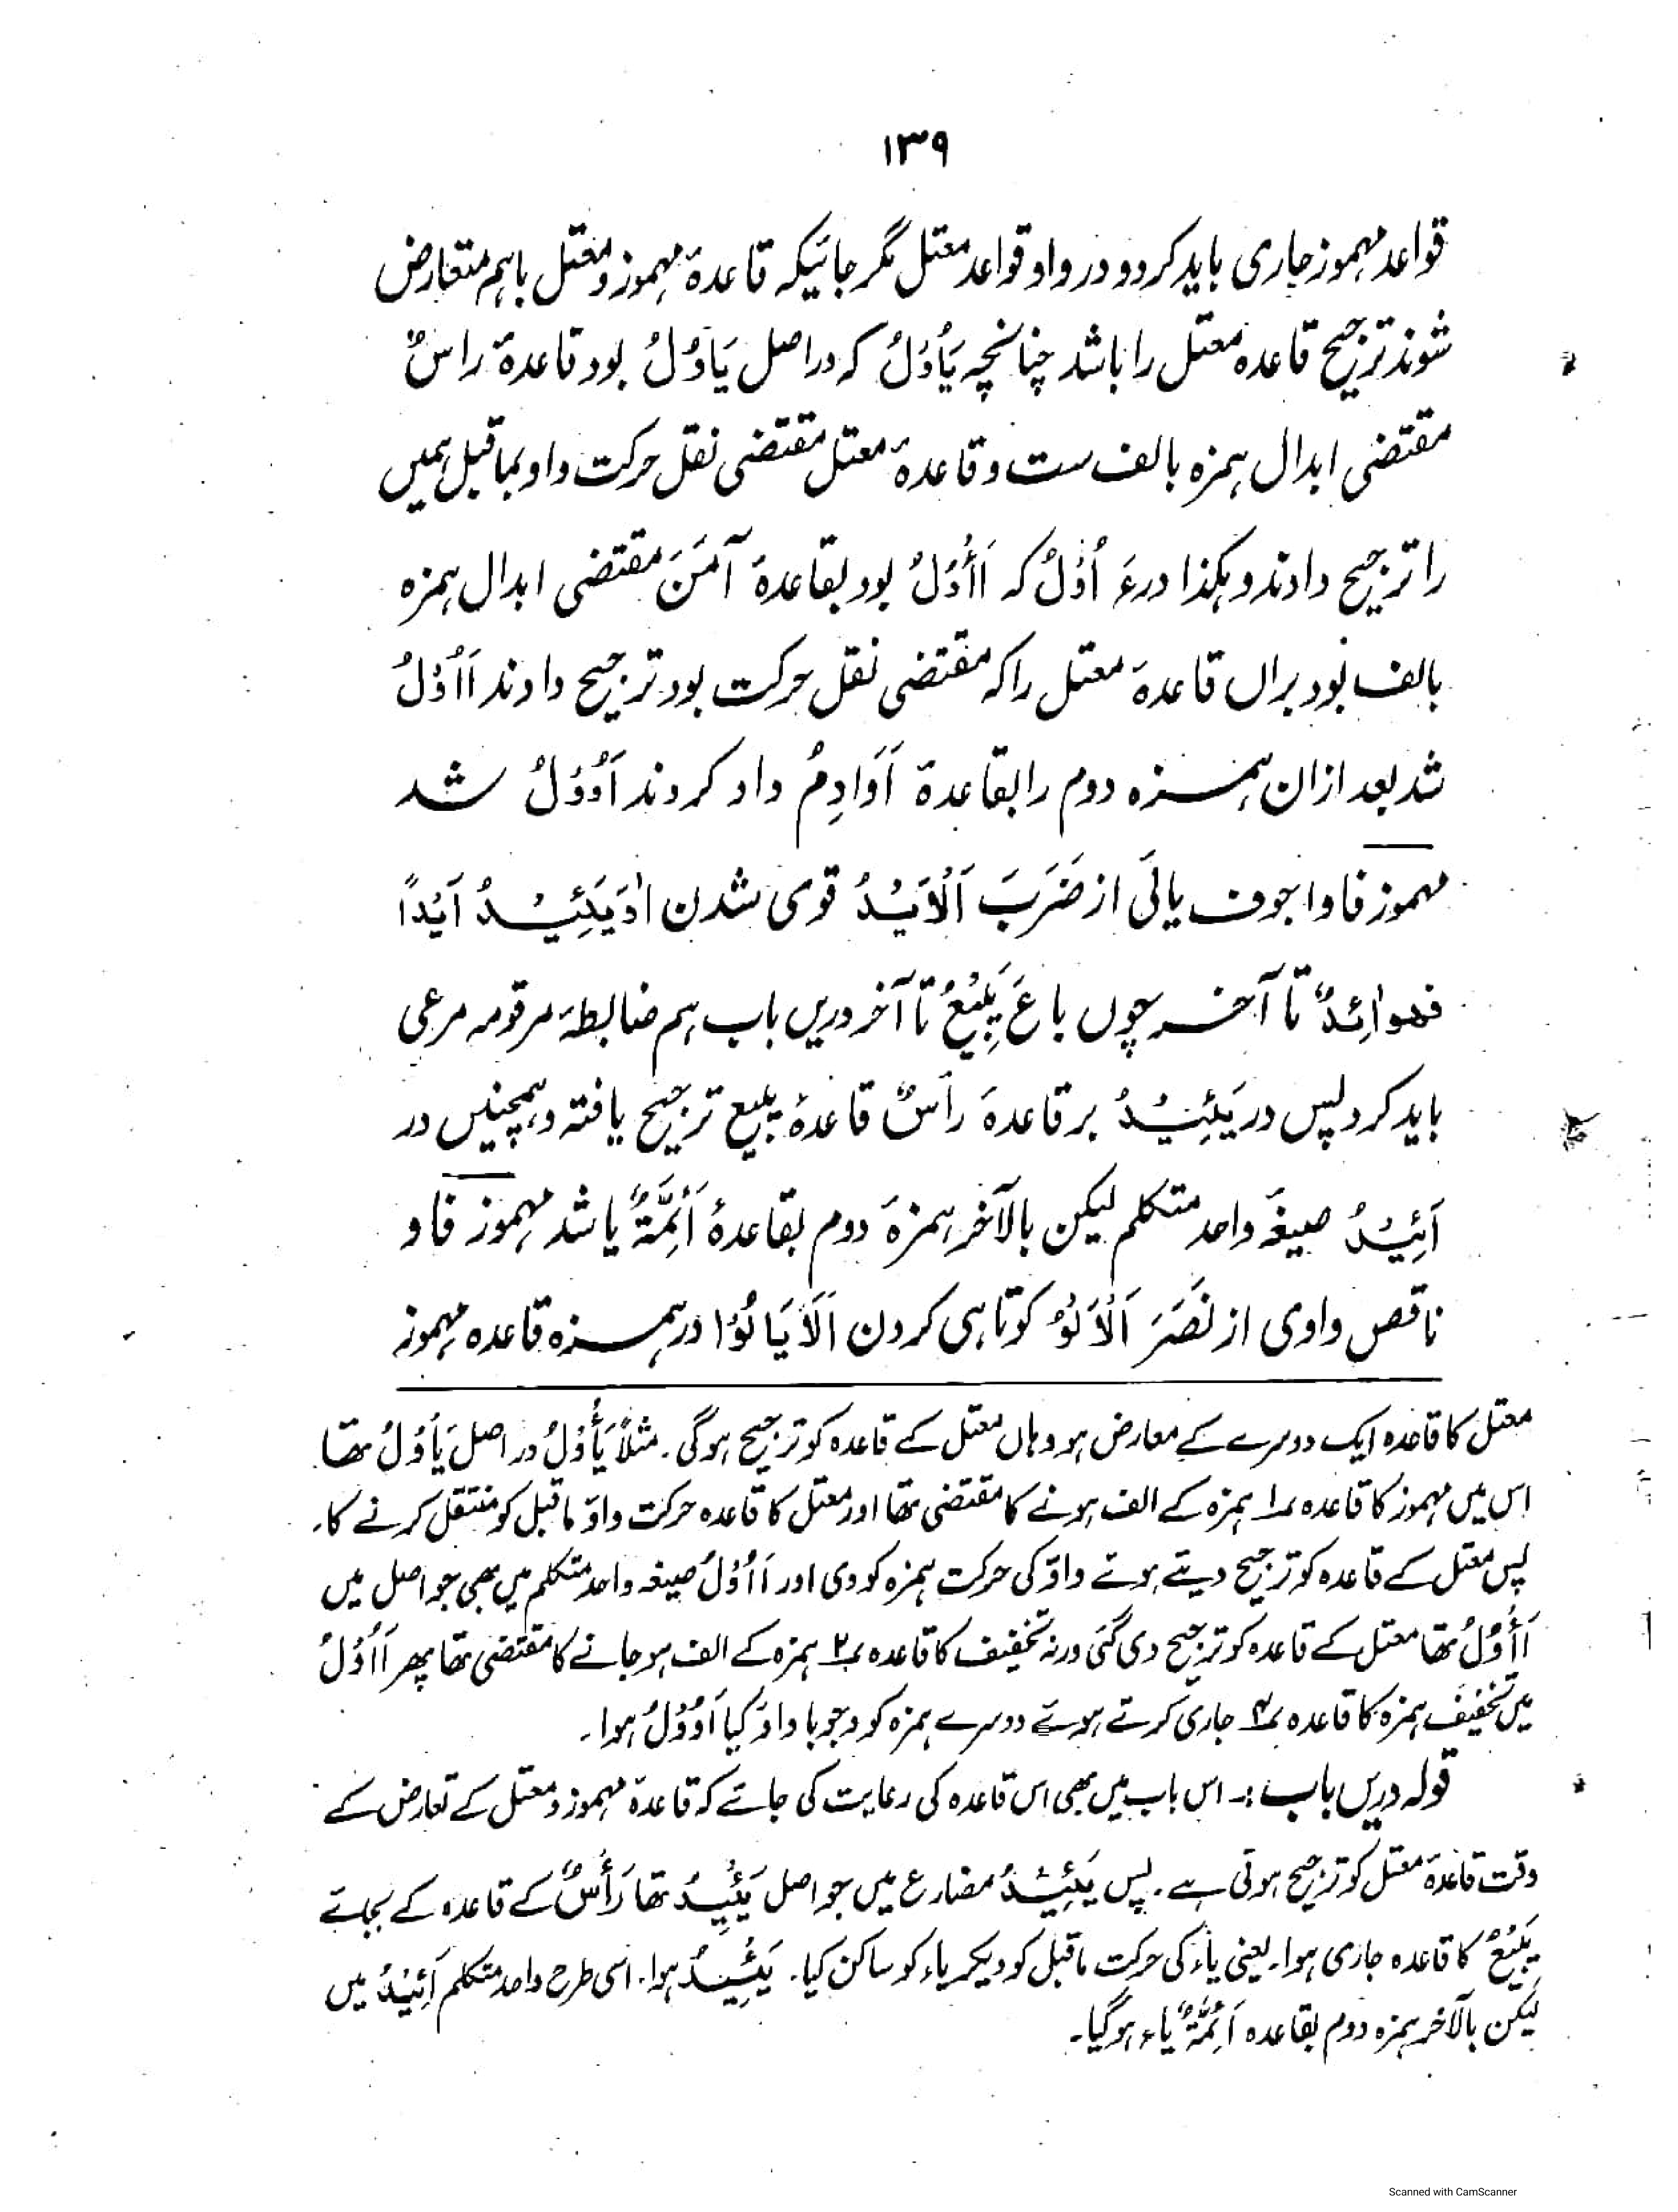 ۱۳۹
قواعد مہموز جاری باید کرد و در واو قواعد معتل مگر جائیکہ قاعدۂ مہموز و معتل باہم متعارض
شوند ترجیح قاعدہ معتل را باشد چنانچہ یَأُوْلُ کہ در اصل یَأْوُلُ بود قاعدۂ راسٌ
مقتضی ابدال ہمزہ بالف ست و قاعدۂ معتل مقتضی نقل حرکت واو بماقبل ہمیں
را ترجیح دادند و ہکذا در أَءُوْلُ کہ أَأْوُلُ بود بقاعدۂ آمَنَ مقتضی ابدال ہمزہ
بالف بود براں قاعدۂ معتل را کہ مقتضی نقل حرکت بود ترجیح دادند أَأُوْلُ
شد بعد ازان ہمزہ دوم را بقاعدۂ أَوَادِمُ واو کردند أَوُوْلُ شد
مہموز فا و اجوف یائی از ضَرَبَ اَلْأَیْدُ قوی شدن اٰدَ یَئِیْدُ أَیْدًا
فھو اٰئِدٌ تا آخر چوں بَاعَ یَبِیْعُ تا آخر دریں باب ہم ضابطۂ مرقومہ مرعی
باید کرد پس در یَئِیْدُ بر قاعدۂ رَأْسٌ قاعدۂ یبیع ترجیح یافتہ و ہمچنیں در
أَئِیْدُ صیغۂ واحد متکلم لیکن بالآخر ہمزۂ دوم بقاعدۂ أَئِمَّۃٌ یا شد مہموز فا و
ناقص واوی از نَصَرَ اَلْأَلْوُ کوتاہی کردن أَلَا یَالُوْا در ہمزہ قاعدہ مہموز
معتل کا قاعدہ ایک دوسرے کے معارض ہو وہاں معتل کے قاعدہ کو ترجیح ہوگی۔ مثلاً یَأُوْلُ در اصل یَأْوُلُ تھا
اس میں مہموز کا قاعدہ ۱ ہمزہ کے الف ہونے کا مقتضی تھا اور معتل کا قاعدہ حرکت واؤ ماقبل کو منتقل کرنے کا۔
پس معتل کے قاعدہ کو ترجیح دیتے ہوئے واؤ کی حرکت ہمزہ کو دی اور أَأُوْلُ صیغہ واحد متکلم میں بھی جو اصل میں
أَأْوُلُ تھا معتل کے قاعدہ کو ترجیح دی گئی ورنہ تخفیف کا قاعدہ ۲ ہمزہ کے الف ہو جانے کا مقتضی تھا پھر أَأُوْلُ
میں تخفیف ہمزہ کا قاعدہ ۴ جاری کرتے ہوئے دوسرے ہمزہ کو وجوبا واؤ کیا أَوُوْلُ ہوا۔
قولہ دریں باب :۔ اس باب میں بھی اس قاعدہ کی رعایت کی جائے کہ قاعدۂ مہموز و معتل کے تعارض کے
وقت قاعدۂ معتل کو ترجیح ہوتی ہے۔ پس یَئِیْدُ مضارع میں جو اصل یَئْیِدُ تھا رَأْسٌ کے قاعدہ کے بجائے
یَبِیْعُ کا قاعدہ جاری ہوا۔ یعنی یاء کی حرکت ماقبل کو دیکر یاء کو ساکن کیا۔ یَئِیْدُ ہوا۔ اسی طرح واحد متکلم أَئِیْدُ میں
لیکن بالآخر ہمزہ دوم بقاعدہ أَئِمَّۃٌ یاء ہو گیا۔
Scanned with CamScanner